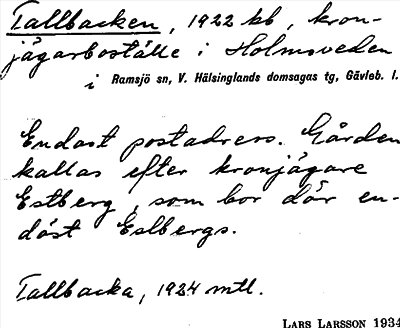 Tallbacken, 1922 kb, kron-
jägarboställe i Holmsveden
i Ramsjö sn, V. Hälsinglands domsagas tg, Gävleb. l.
Endast postadress. Gården
kallas efter kronjägare
Estberg, som bor där en-
dast Estbergs.
Tallbacka, 1934 mtl.
LARS LARSSON 1934